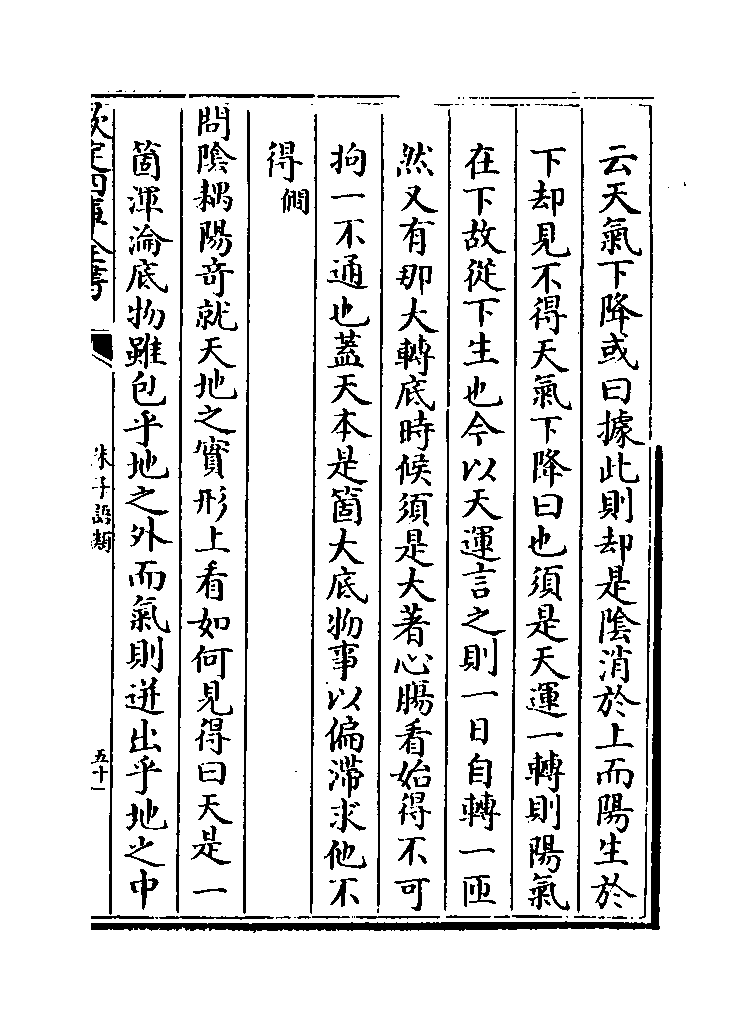 云天氣下降或曰據此則却是陰消於上而陽生於
下却見不得天氣下降曰也須是天運一轉則陽氣
在下故從下生也今以天運言之則一日自轉一匝
然又有那大轉底時候須是大著心腸看始得不可
拘一不通也蓋天本是箇大底物事以偏滯求他不
得僩
問陰耦陽奇就天地之實形上看如何見得曰天是一
箇渾淪底物雖包乎地之外而氣則迸出乎地之中
欽定四庫全書
朱子語類
五十一